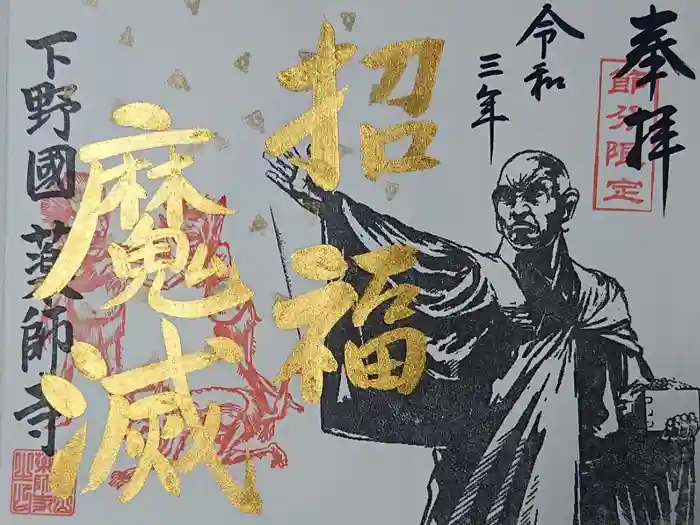 奉拝
節分限定
令和
三年
招福
魔滅
下野國 薬師寺